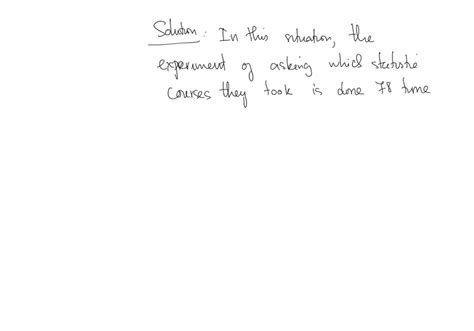 Solution: In this situation, the
experiment of asking which statistic
courses they took is done 78 time